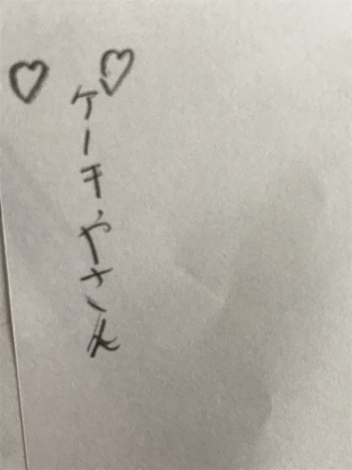 ケーキやさん